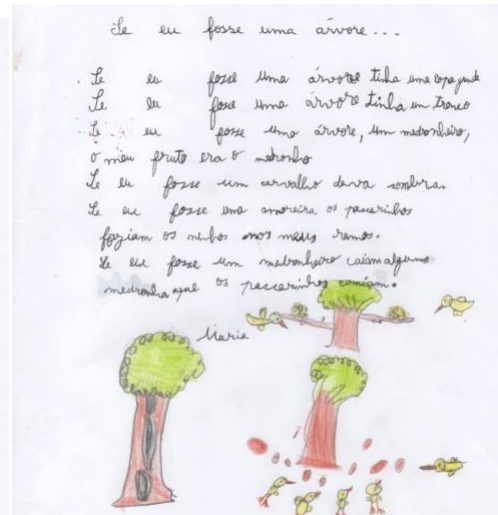 Se eu fosse uma árvore...
Se eu fosse uma árvore tinha uma copa grande
Se eu fosse uma árvore tinha um tronco
Se eu fosse uma árvore, um medronheiro,
o meu fruto era o medronho
Se eu fosse um carvalho dava sombra.
Se eu fosse uma amoreira os passarinhos
faziam os ninhos nos meus ramos.
Se eu fosse um medronheiro caiam alguns
medronhos que os passarinhos comiam.
Maria